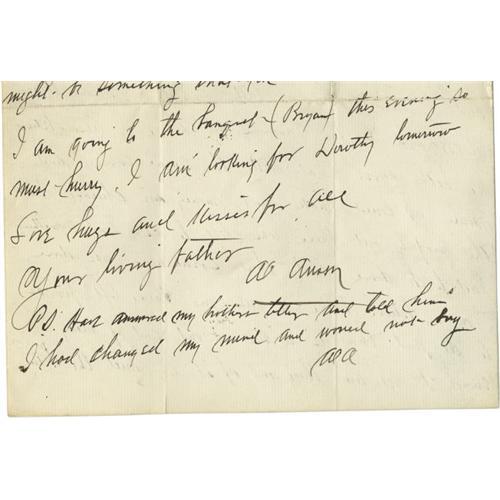 might - or something
I am going to the banquet - (Bryan) this evening so
must hurry. I am looking for Dorothy tomorrow
Love hugs and kisses for all
Your loving Father
AC Anson
P.S. Have answered my brothers letter and told him
I had changed my mind and would not buy
ACA